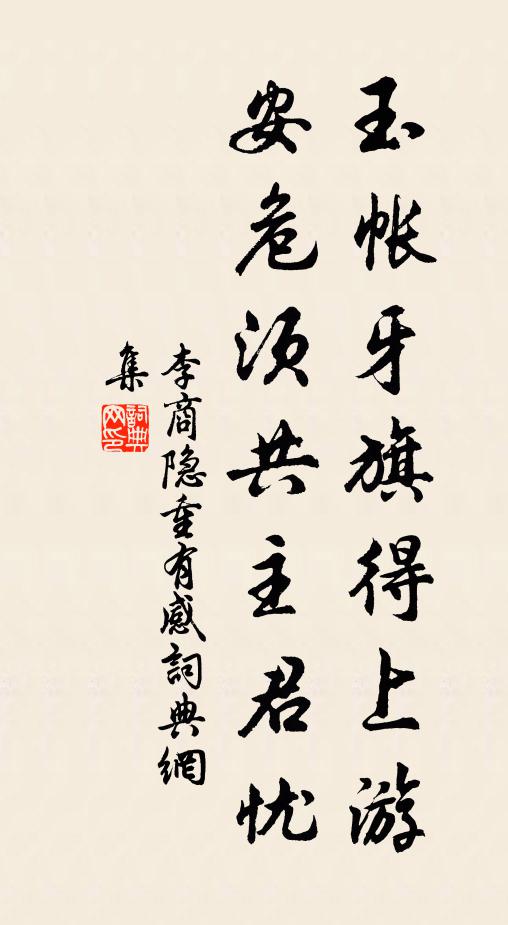 玉帐牙旗得上游
安危须共主君忧
李商隐重有感詞典網
集
詞典
网印